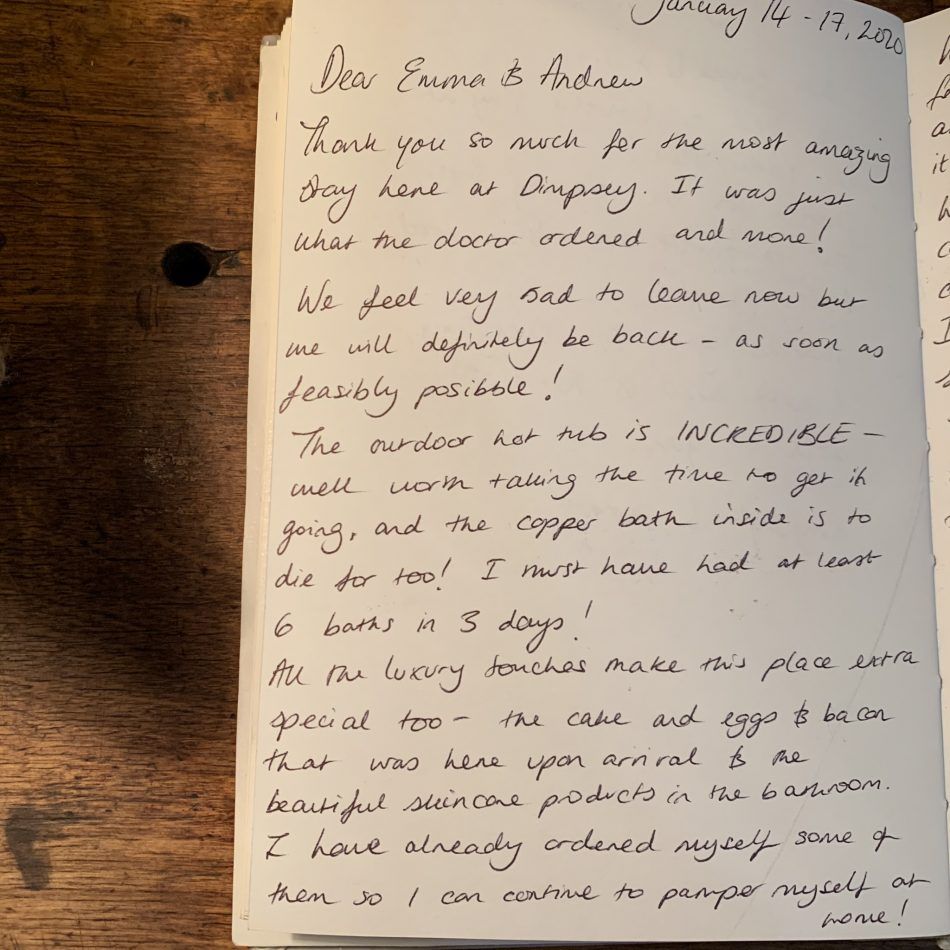 January 14 - 17, 2020
Dear Emma & Andrew
Thank you so much for the most amazing
stay here at Dimpsey. It was just
what the doctor ordered and more!
We feel very sad to leave now but
we will definitely be back - as soon as
feasibly posibble!
The outdoor hot tub is INCREDIBLE -
well worth taking the time to get it
going, and the copper bath inside is to
die for too! I must have had at least
6 baths in 3 days!
All the luxury touches make this place extra
special too - the cake and eggs & bacon
that was here upon arrival & the
beautiful skincare products in the bathroom.
I have already ordered myself some of
them so I can contine to pamper myself at
home!